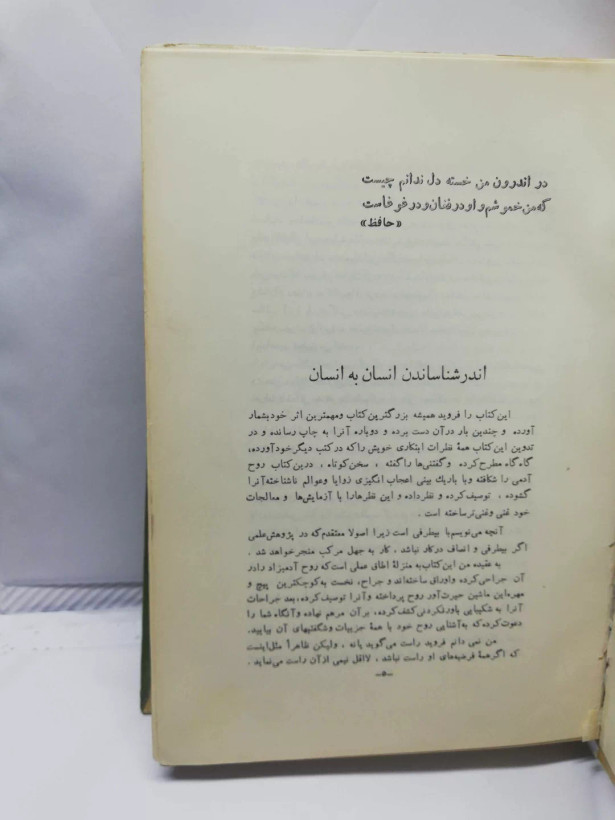 در اندرون من خسته دل ندانم چیست
که من خموشم و او در فغان و در غوغاست
«حافظ»
اندر شناساندن انسان به انسان
این کتاب را فروید همیشه بزرگترین کتاب و مهمترین اثر خود بشمار
آورده و چندین بار در آن دست برده و دوباره آنرا به چاپ رسانده و در
تدوین این کتاب همهٔ نظرات ابتکاری خویش را که در کتب دیگر خود آورده،
گاه گاه مطرح کرده و گفتنی‌ها را گفته ، سخن کوتاه ، در این کتاب روح
آدمی را شکافته و با باریک بینی اعجاب انگیزی زوایا و عوالم ناشناخته آنرا
گشوده ، توصیف کرده و نظر داده و این نظرها را با آزمایش‌ها و معالجات
خود غنی و غنی‌تر ساخته است .
آنچه می‌نویسم با بیطرفی است زیرا اصولا معتقدم که در پژوهش علمی
اگر بیطرفی و انصاف در کار نباشد ، کار به جهل مرکب منجر خواهد شد .
به عقیده من این کتاب به منزلهٔ اطاق عملی است که روح آدمیزاد را در
آن جراحی کرده و اوراق ساخته‌اند و جراح، نخست به کوچکترین پیچ و
مهره این ماشین حیرت‌آور روح پرداخته و آنرا توصیف کرده، بعد جراحات
آنرا به شکیبایی باور نکردنی کشف کرده، بر آن مرهم نهاده و آنگاه شما را
دعوت کرده که به آشنایی روح خود با همهٔ جزییات و شگفتیهای آن بیایید.
من نمی دانم فروید راست می‌گوید یا نه ، ولیکن ظاهراً مثل اینست
که اگر همهٔ فرضیه‌های او راست نباشد ، لااقل نیمی از آن راست می‌نماید .
-۵-